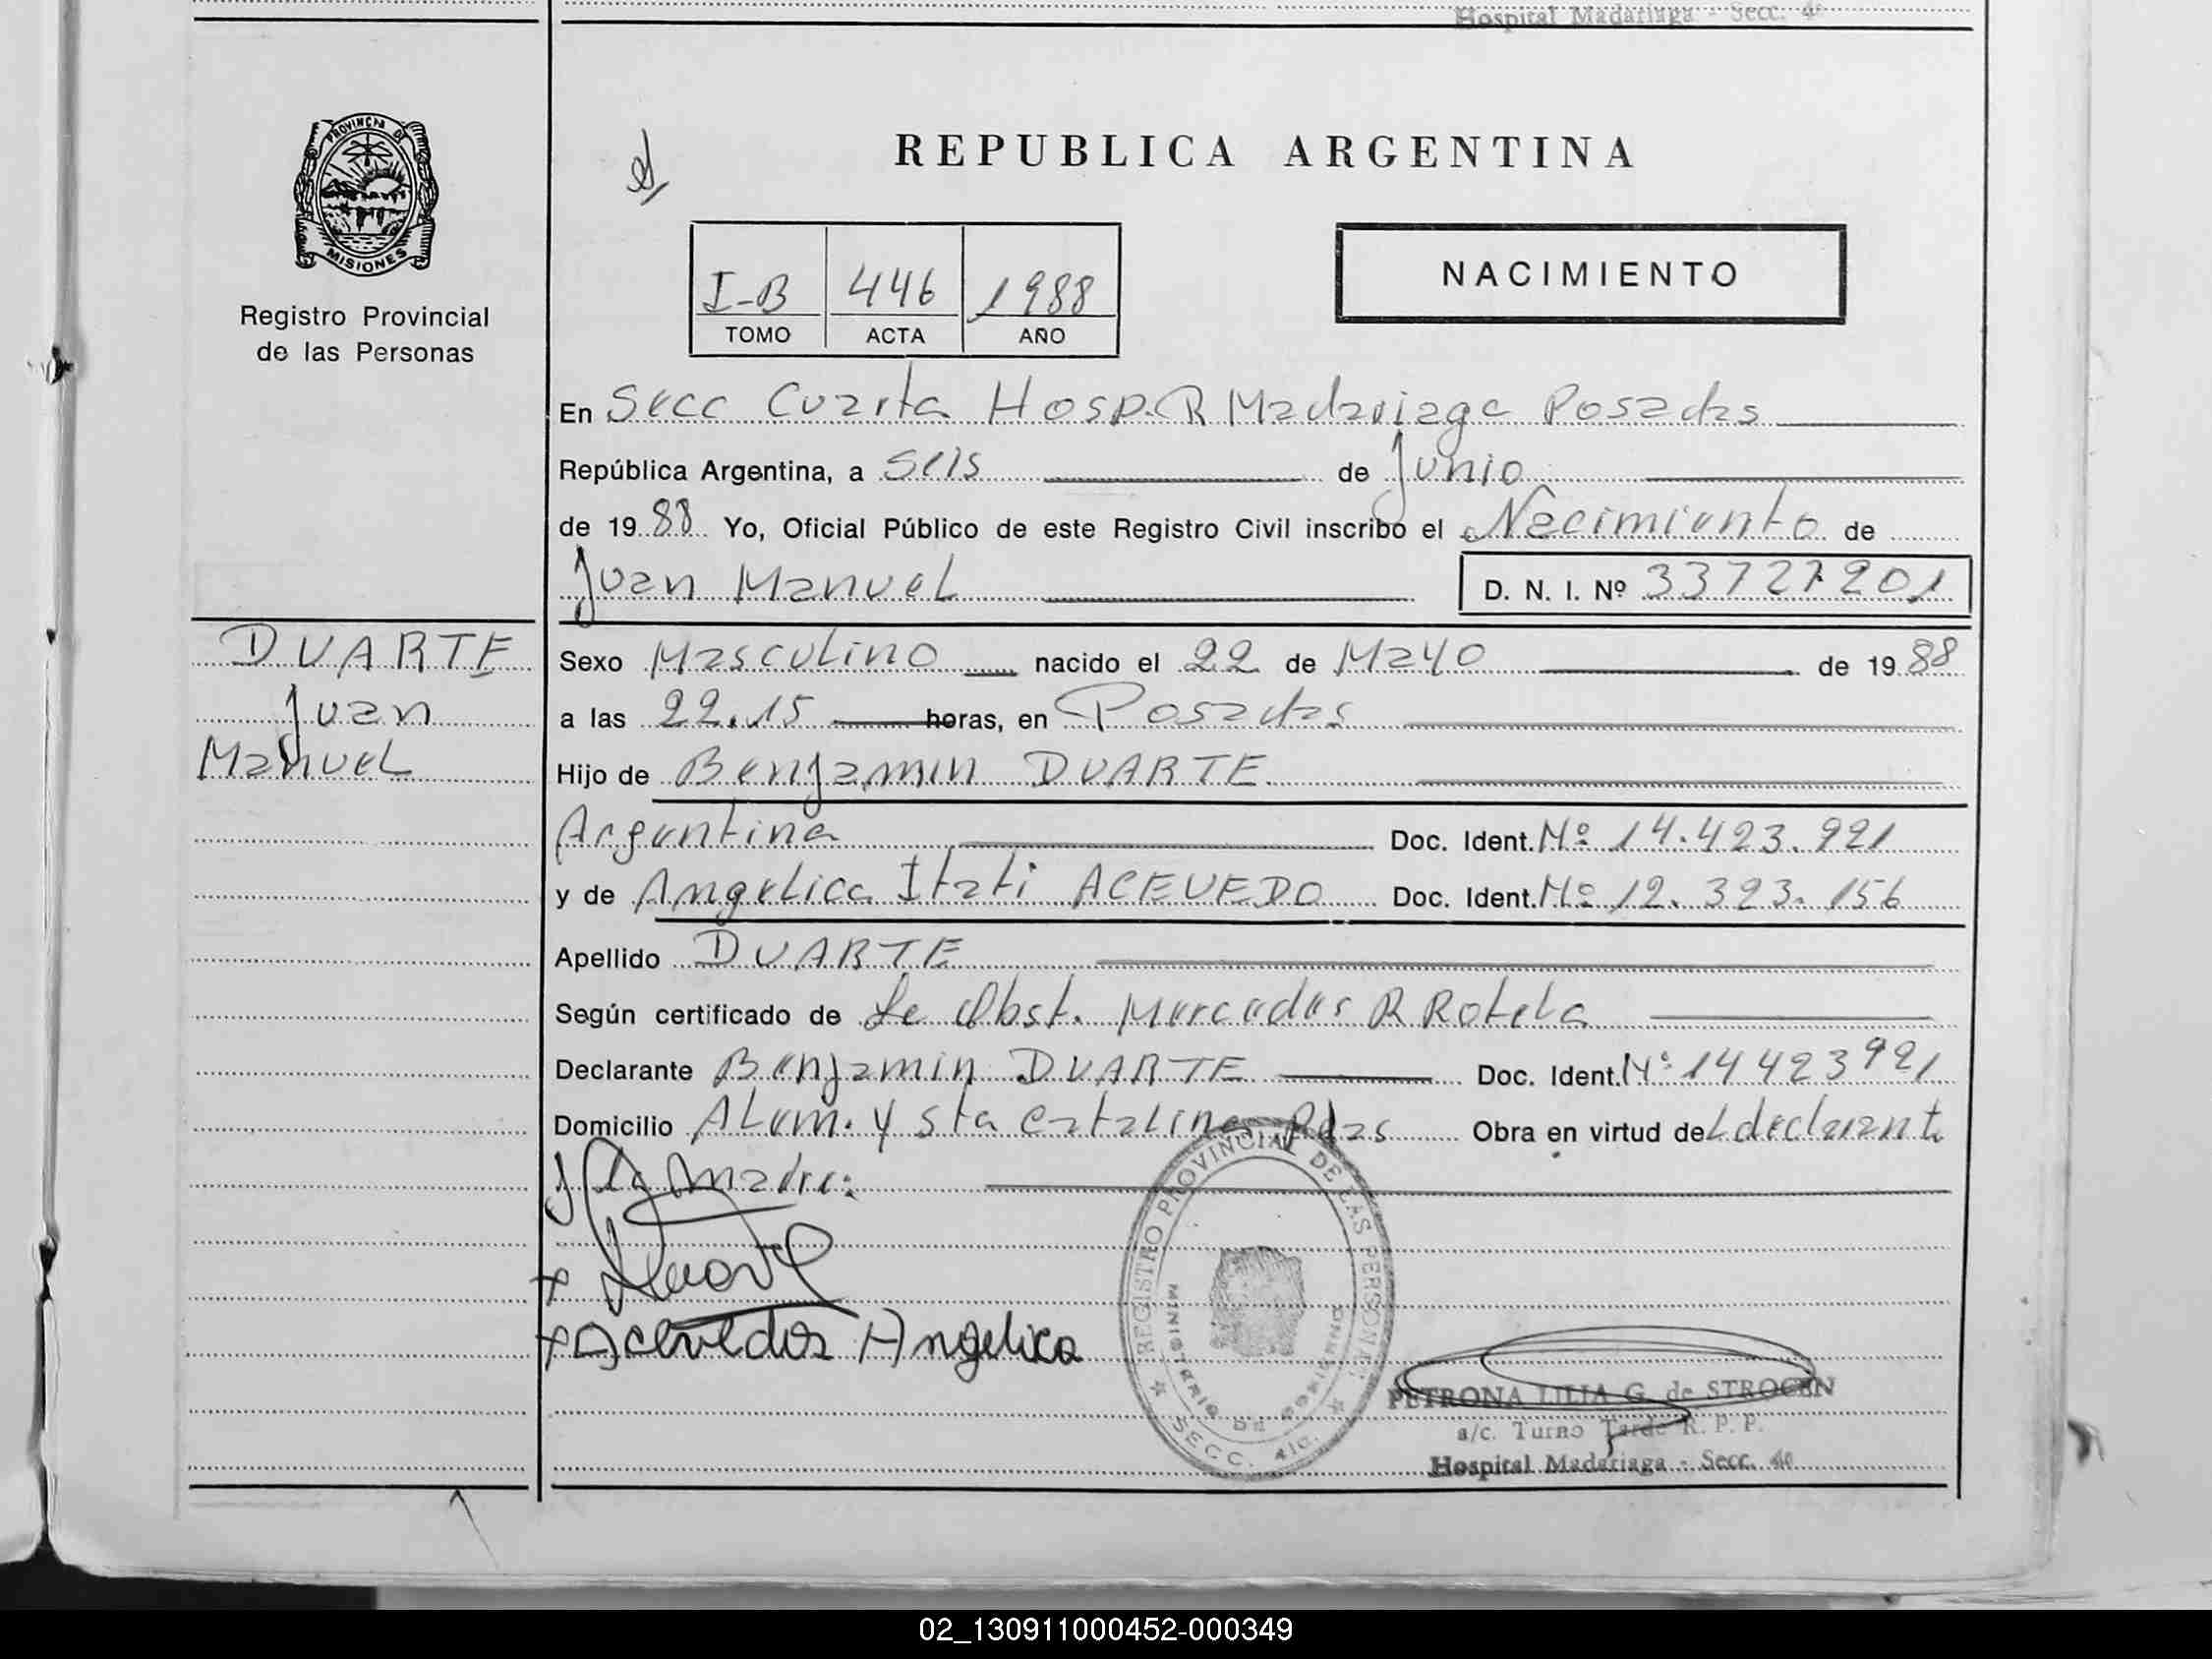 Hospital Madariaga - Secc. 4a
PROVINCIA DE
MISIONES
Registro Provincial
de las Personas
REPUBLICA ARGENTINA
I-B 446 1988
TOMO ACTA AÑO
NACIMIENTO
En Secc Cuarta Hosp. R Madariaga Posadas
República Argentina, a Seis de Junio
de 1988 Yo, Oficial Público de este Registro Civil inscribo el Nacimiento de
Juan Manuel D. N. I. Nº 33727201
DUARTE
Juan
Manuel
Sexo Masculino nacido el 22 de Mayo de 1988
a las 22.15 horas, en Posadas
Hijo de Benjamin DUARTE
Argentina Doc. Ident. Nº 14.423.921
y de Angelica Itati ACEVEDO Doc. Ident. Nº 12.323.156
Apellido DUARTE
Según certificado de La Obst. Mercedes R Rotela
Declarante Benjamin DUARTE Doc. Ident. Nº 14423921
Domicilio ALem. y Sta Catalina Pdas Obra en virtud del declarante
y la Madre:
x Duarte
x Acevedos Angelica
REGISTRO PROVINCIAL DE LAS PERSONAS
MINISTERIO DE GOBIERNO
SECC. 4ta.
PETRONA LILIA G. de STROCEN
a/c. Turno Tarde R. P. P.
Hospital Madariaga - Secc. 4a
02_130911000452-000349